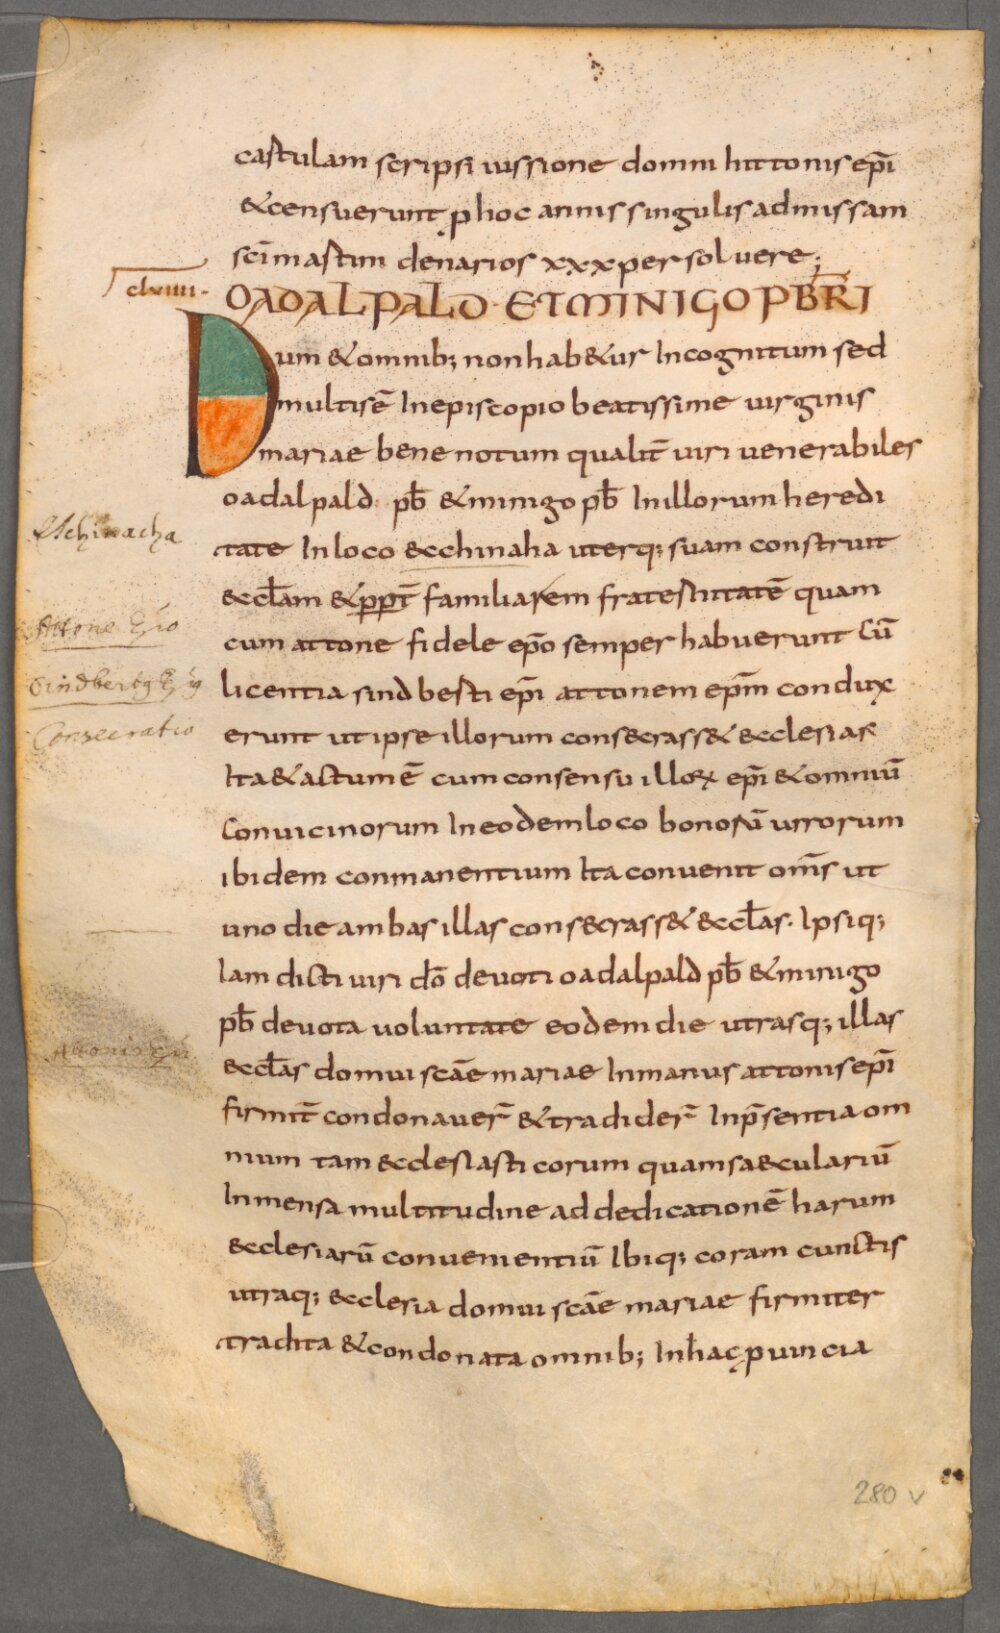 castulam scripsi iussione domni hittonis ep̄i
&censuerunt ꝓ hoc annis singulis admissam
sc̄i mastini denarios xxx persoluere;
clxiiii·
OADALPALD· ET MINIGO PB̄RI
Dum & omnib; non hab&ur Incognitum sed
multis ē In episcopio beatissime uirginis
mariae bene notum qualit̄ uiri uenerabiles
oadalpald· pb̄ & minigo pb̄ In illorum heredi
tate In loco ecchinaha uterq; suam construit
&cl̄am &ꝑpt̄ familiarem fratesnitatē quam
cum attone fidele ep̄o semper habuerunt Cū
licentia sindbesti ep̄i attonem ep̄m condux
erunt ut ipse illorum cons&crass& &cclesias
Ita & actum ē cum consensu illoꝝ ep̄i & omniū
Conuicinorum In eodem loco bonorū uirorum
ibidem conmanentium Ita conuenit om̄s ut
uno die ambas illas cons&crass& &ccl̄as. Ipsiq;
Iam dicti uiri dō deuoti oadalpald pb̄ & minigo
pb̄ deuota uoluntate eodem die utrasq; illas
&ccl̄as domui sc̄ae mariae In manus attonis ep̄i
firmit̄ condonauer̄ & tradider̄ In p̄sentia om
nium tam &cclesiasticorum quam sa&culariū
Inmensa multitudine ad dedicationē harum
&cclesiarū conuenientiū Ibiq; coram cunctis
utraq; &cclesia domui sc̄ae mariae firmiter
tradita & condonata omnib; In hac ꝓuincia
Eschinacha
Attone Ep̄io
Consecratio
Attonis Ep̄i
280 v